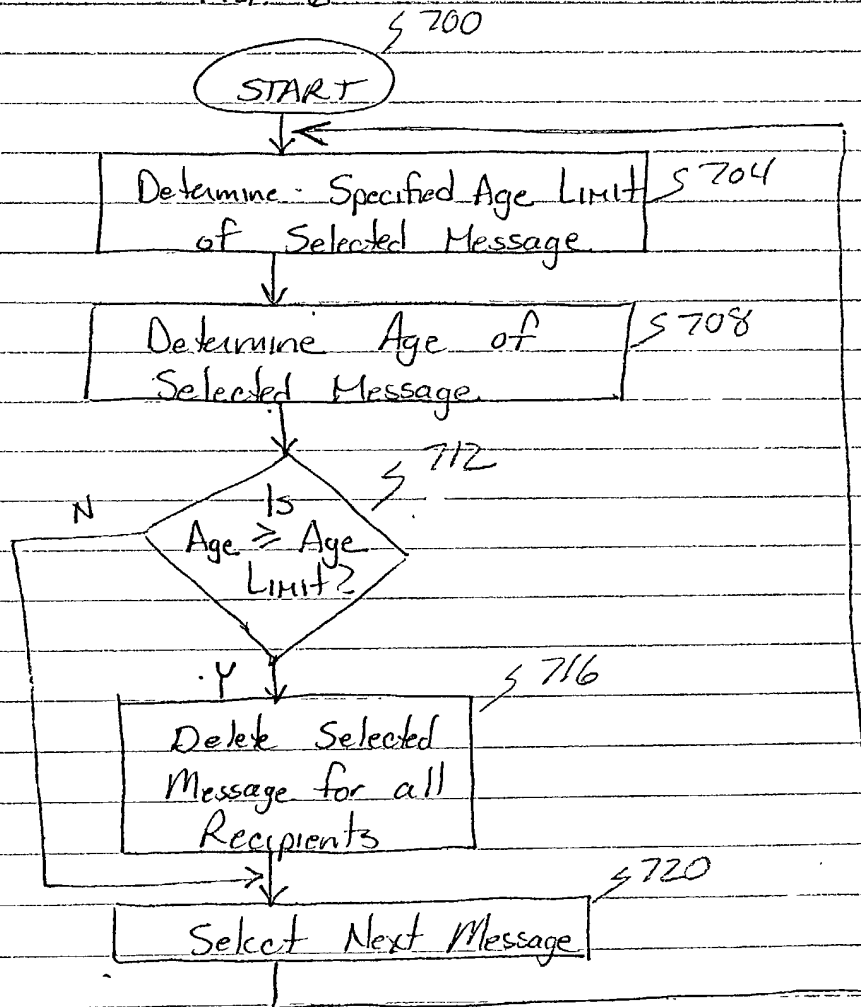 700
START
Determine Specified Age Limit
704
of Selected Message
Determine Age of
708
Selected Message
712
N
Is
Age ≥ Age
Limit?
Y
716
Delete Selected
Message for all
Recipients
720
Select Next Message